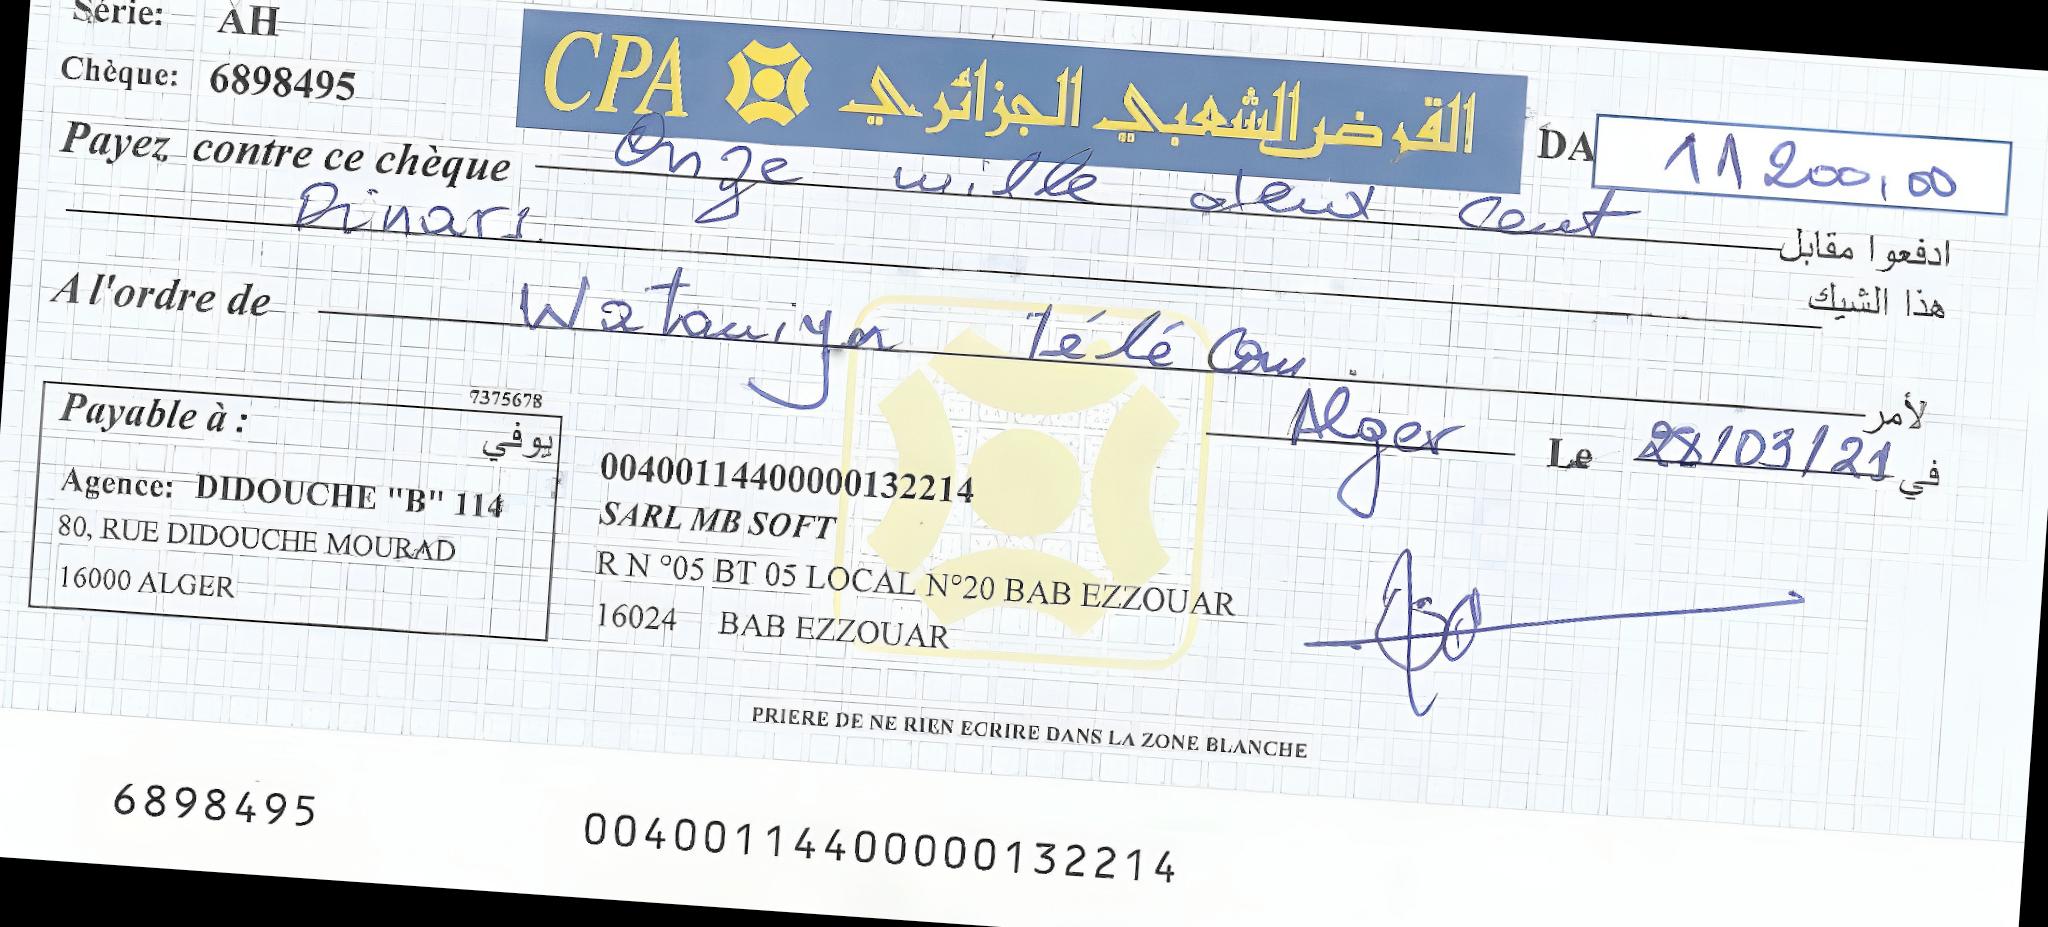 Série: AH
Chèque: 6898495
CPA القرض الشعبي الجزائري
DA 11 200,00
Payez contre ce chèque Onze mille deux cent ادفعوا مقابل
Dinars. هذا الشيك
A l'ordre de Wataniya Télécom. لأمر
Alger Le 28/03/21 في
7375678
Payable à : يوفي
Agence: DIDOUCHE "B" 114
80, RUE DIDOUCHE MOURAD
16000 ALGER
00400114400000132214
SARL MB SOFT
R N °05 BT 05 LOCAL N°20 BAB EZZOUAR
16024 BAB EZZOUAR
PRIERE DE NE RIEN ECRIRE DANS LA ZONE BLANCHE
6898495 00400114400000132214